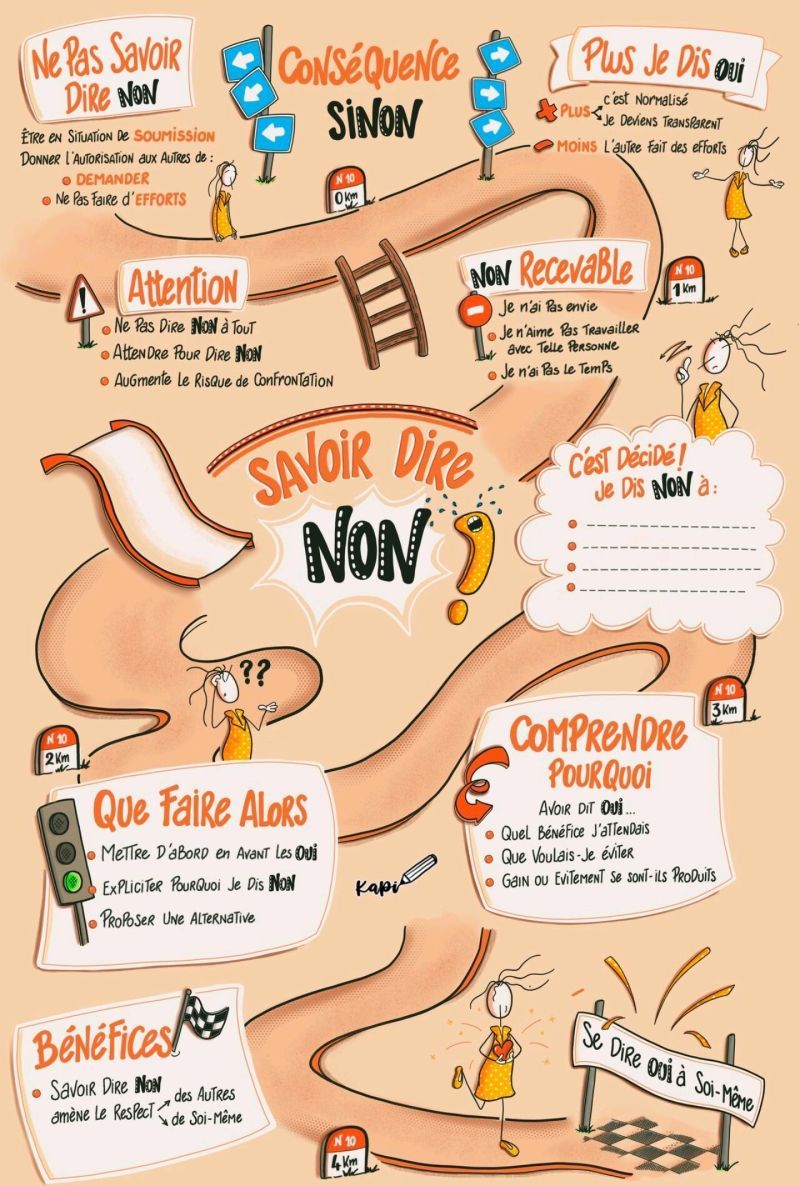 Ne Pas Savoir
Dire NON
Être en Situation de SOUMISSION
Donner L'Autorisation aux Autres de :
DEMANDER
Ne Pas Faire d'EFFORTS
CONSÉQUENCE
SINON
Plus Je Dis OUI
PLUS
c'est Normalisé
Je Deviens TRANSPARENT
MOINS L'autre Fait des efforts
N 10
0 Km
N 10
1 Km
Attention
!
Ne Pas Dire NON à Tout
Attendre Pour Dire NON
Augmente Le Risque de Confrontation
NON Recevable
Je n'ai Pas envie
Je n'Aime Pas Travailler
avec Telle Personne
Je n'ai Pas Le Temps
SAVOIR DIRE
NON !
C'est Décidé !
Je Dis NON à :
??
N 10
2 Km
N 10
3 Km
Que Faire Alors
Mettre D'abord en Avant Les OUI
Expliciter Pourquoi Je Dis NON
Proposer Une Alternative
Comprendre
Pourquoi
Avoir dit OUI ...
Quel Bénéfice J'attendais
Que Voulais-Je Éviter
Gain ou Evitement Se sont-ils Produits
Kapi
Bénéfices
Savoir Dire NON
amène Le Respect
des Autres
de Soi-Même
Se Dire OUI à Soi-Même
N 10
4 Km